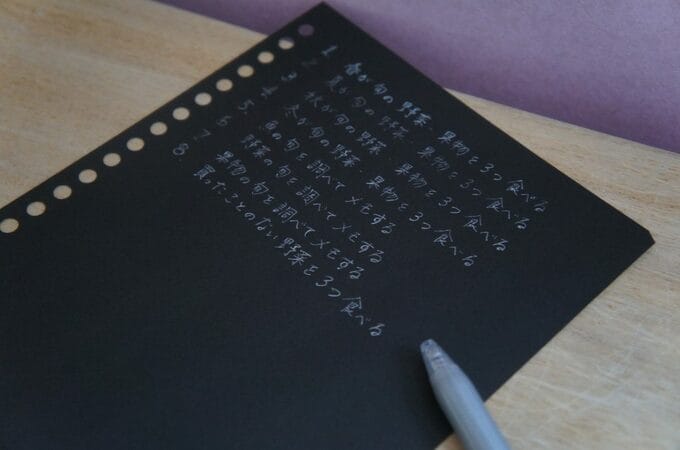 1. 春が旬の野菜・果物を3つ食べる
2. 夏が旬の野菜・果物を3つ食べる
3. 秋が旬の野菜・果物を3つ食べる
4. 冬が旬の野菜・果物を3つ食べる
5. 魚の旬を調べてメモする
6. 野菜の旬を調べてメモする
7. 果物の旬を調べてメモする
8. 買ったことのない野菜を3つ食べる